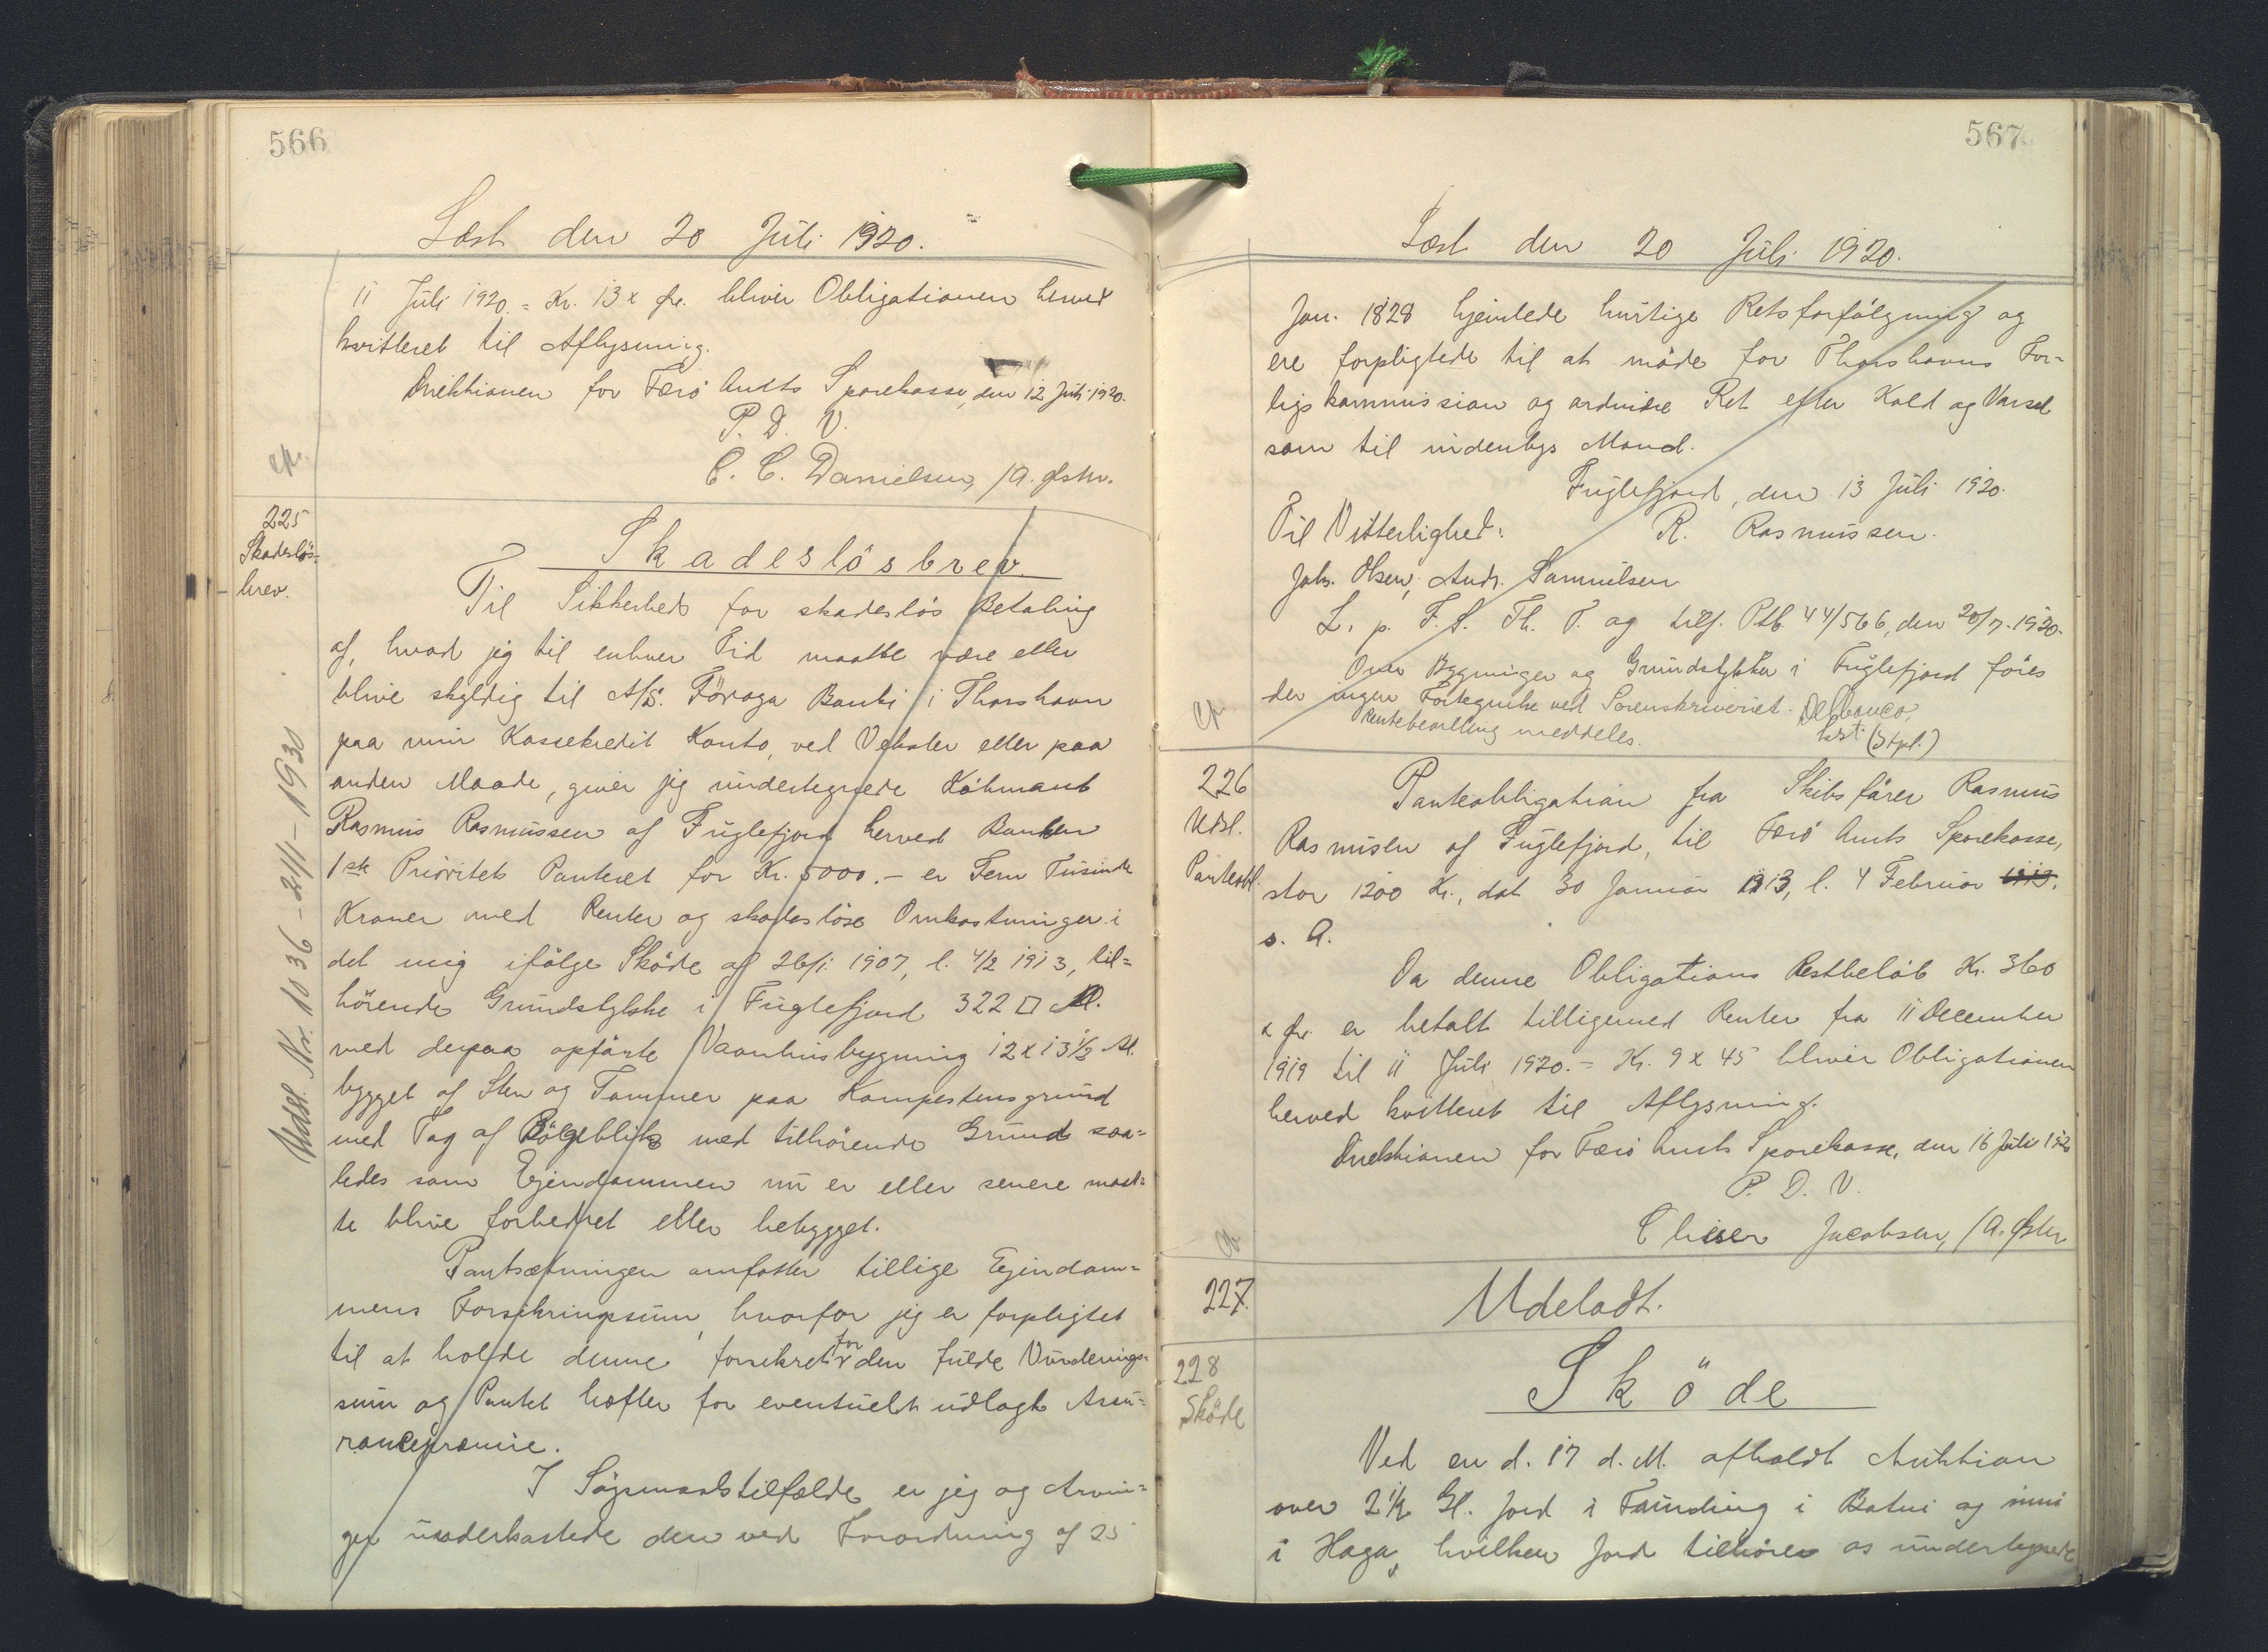 566
Læst den 20 Juli 1920.
11 Juli 1920. = Kr. 13 x Øre. bliver Obligationen herved
kvitteret til Aflysning.
Direktionen for Færø Amts Sparekasse, den 12 Juli 1920.
P. D. V.
C. C. Danielsen, /A. Østrn.
225
Skadeslös-
brev.
Udsl. Nr. 1036 - 21/1 - 1930
Skadeslösbrev
Til Sikkerhed for skadeslös Betaling
af, hvad jeg til enhver Tid maatte være eller
blive skyldig til A/S. Föroya Banki i Thorshavn
paa min Kassekredit Konto, ved Veksler eller paa
anden Maade, giver jeg undertegnede Köbmand
Rasmus Rasmussen af Fuglefjord herved Banken
1ste Prioritets Panteret for Kr. 5000.- er Fem Tusinde
Kroner med Renter og skadeslöse Omkostninger i
det mig ifölge Sköde af 26/1. 1907, l. 4/2 1913, til=
hörende Grundstykke i Fuglefjord 322 □ Al.
med derpaa opförte Vaanhusbygning 12 x 13½ Al.
bygget af Sten og Tømmer paa Kampestensgrund
med Tag af Bölgeblik med tilhörende Grund saa=
ledes som Ejendommen nu er eller senere maat=
te blive forbedret eller bebygget.
Pantsætningen omfatter tillige Ejendom=
mens Forsikringssum, hvorfor jeg er forpligtet
til at holde denne forsikret for den fulde Vurderings=
sum og Pantet hæfter for eventuelt udlagt Assu=
rancepræmie.
I Sögsmaalstilfælde er jeg og Arvin=
ger underkastede den ved Forordning af 25
567
Læst den 20 Juli 1920.
Jan. 1828 hjemlede hurtige Retsforfölgning og
ere forpligtede til at möde for Thorshavns For=
ligskommission og ordinære Ret efter Kald og Varsel
som til indenbys Mand.
Fuglefjord, den 13 Juli 1920.
Til Vitterlighed: R. Rasmussen.
Johs. Olsen, Andr. Samuelsen
L. p. F. S. Th. T. og tilf. Ptb. 44/566, den 20/7. 1920.
Over Bygninger og Grundstykker i Fuglefjord föres
der ingen Fortegnelse ved Sorenskriveriet. Delbanco,
Rentebevilling meddeles. kst (Stpl.)
226
Udsl.
Panteobl.
Panteobligation fra Skibsförer Rasmus
Rasmusen af Fuglefjord, til Færö Amts Sparekasse,
stor 1200 Kr., dat 30 Januar 1913, l. 4 Februar 1913.
s. A.
Da denne Obligations Restbelöb Kr. 360
x Øre er betalt tilligemed Renter fra 11 December
1919 til 11 Juli 1920. = Kr. 9 x 45 bliver Obligationen
herved kvitteret til Aflysning.
Direktionen for Færö Amts Sparekasse, den 16 Juli 1920
P. D. V.
Jacobsen, /A. Østrn
227.
Udeladt.
228
Sköde
Sköde
Ved en d. 17 d. M. afholdt Auktion
over 2½ Gl. Jord i Funding i Batni og inni
i Haga, hvilken Jord tilhörer os undertegnede